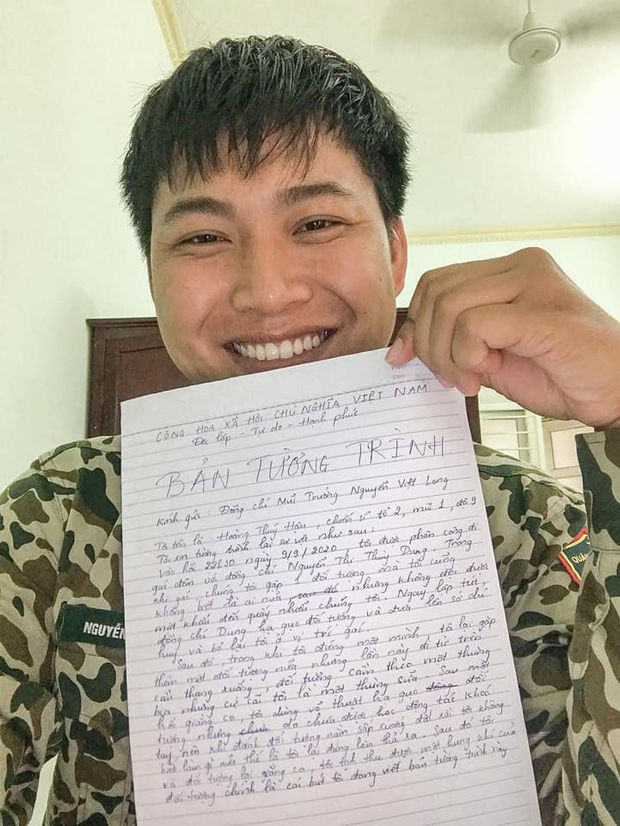 CỘNG HÒA XÃ HỘI CHỦ NGHĨA VIỆT NAM
Độc lập - Tự do - Hạnh phúc
BẢN TƯỜNG TRÌNH
Kính gửi: Đồng chí Mũi Trưởng Nguyễn Việt Long
Tôi tên là Hoàng Thuỳ , chiến sĩ tổ 2, mũi 1, đội 9
Tôi xin tường trình lại sự việc như sau:
Vào hồi 22h30 ngày 9/9/2020, tôi được phân công đi
gác đêm với đồng chí Nguyễn Thị Thùy Dung. Trong
khi gác, chúng tôi gặp 1 đối tượng mà tôi cũng
không biết là ai nữa, nhưng không đội được
mật khẩu đối quấy nhiễu chúng tôi. Ngay lập tức,
đồng chí Dung hạ gục đối tượng và đưa lên sở chỉ
huy và bỏ lại tôi ở vị trí gác.
Sau đó, trong khi tôi đứng một mình, tôi lại gặp
thêm một đối tượng nữa nhưng lần này đi từ trên
cầu thang xuống, đối tượng cầm theo một thùng
bia nhưng cứ cãi tôi là một thùng sữa. Sau một
hồi giằng co, tôi dùng võ thuật hạ gục đối
tượng nhưng do chưa được học động tác khoá
tay nên khi đánh đối tượng nằm sấp xuống đất rồi tôi không
biết làm gì nữa thế là tôi lại đứng lên thở ra. Sau đó tôi
và đối tượng lại giằng co, tôi tịch thu được một hung khí của
đối tượng chính là cái bút tôi đang viết bản tường trình này
NGUYỄN
QUÂ